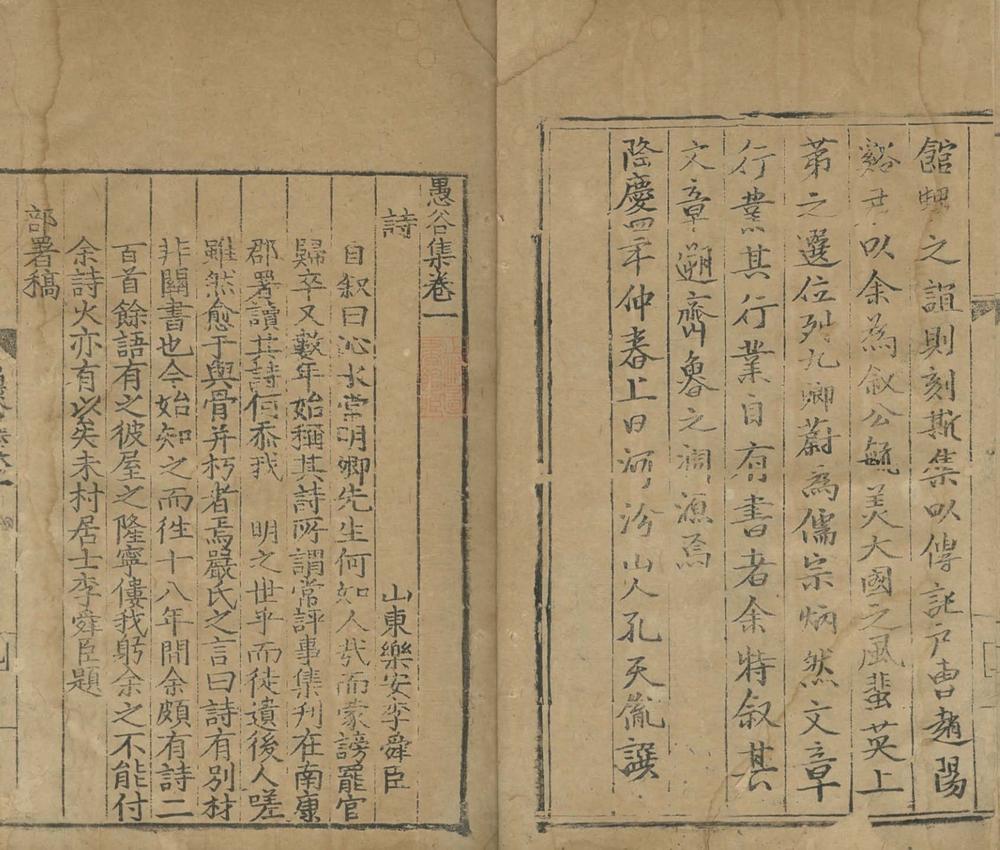 館甥之誼則刻斯集以傳託戶曹趙陽
谿君以余為敘公毓美大國之風蜚英上
第之選位列九卿蔚為儒宗炳然文章
行業其行業自有書者余特敘其
文章遡齊魯之淵源焉
隆慶四年仲春上日河汾山人孔天胤譔
愚谷集卷一
山東樂安李舜臣
詩
自叙曰沁水常明卿先生何如人哉而蒙謗罷官
歸卒又數年始稱其詩所謂常評事集刋在南康
郡署讀其詩何忝我 明之世乎而徒遺後人嗟
雖然愈于與骨并朽者焉嚴氏之言曰詩有別材
非關書也今始知之而徃十八年間余頗有詩二
百首餘語有之彼屋之隆寧僂我躬余之不能付
余詩火亦有以矣未村居士李舜臣題
部署稿